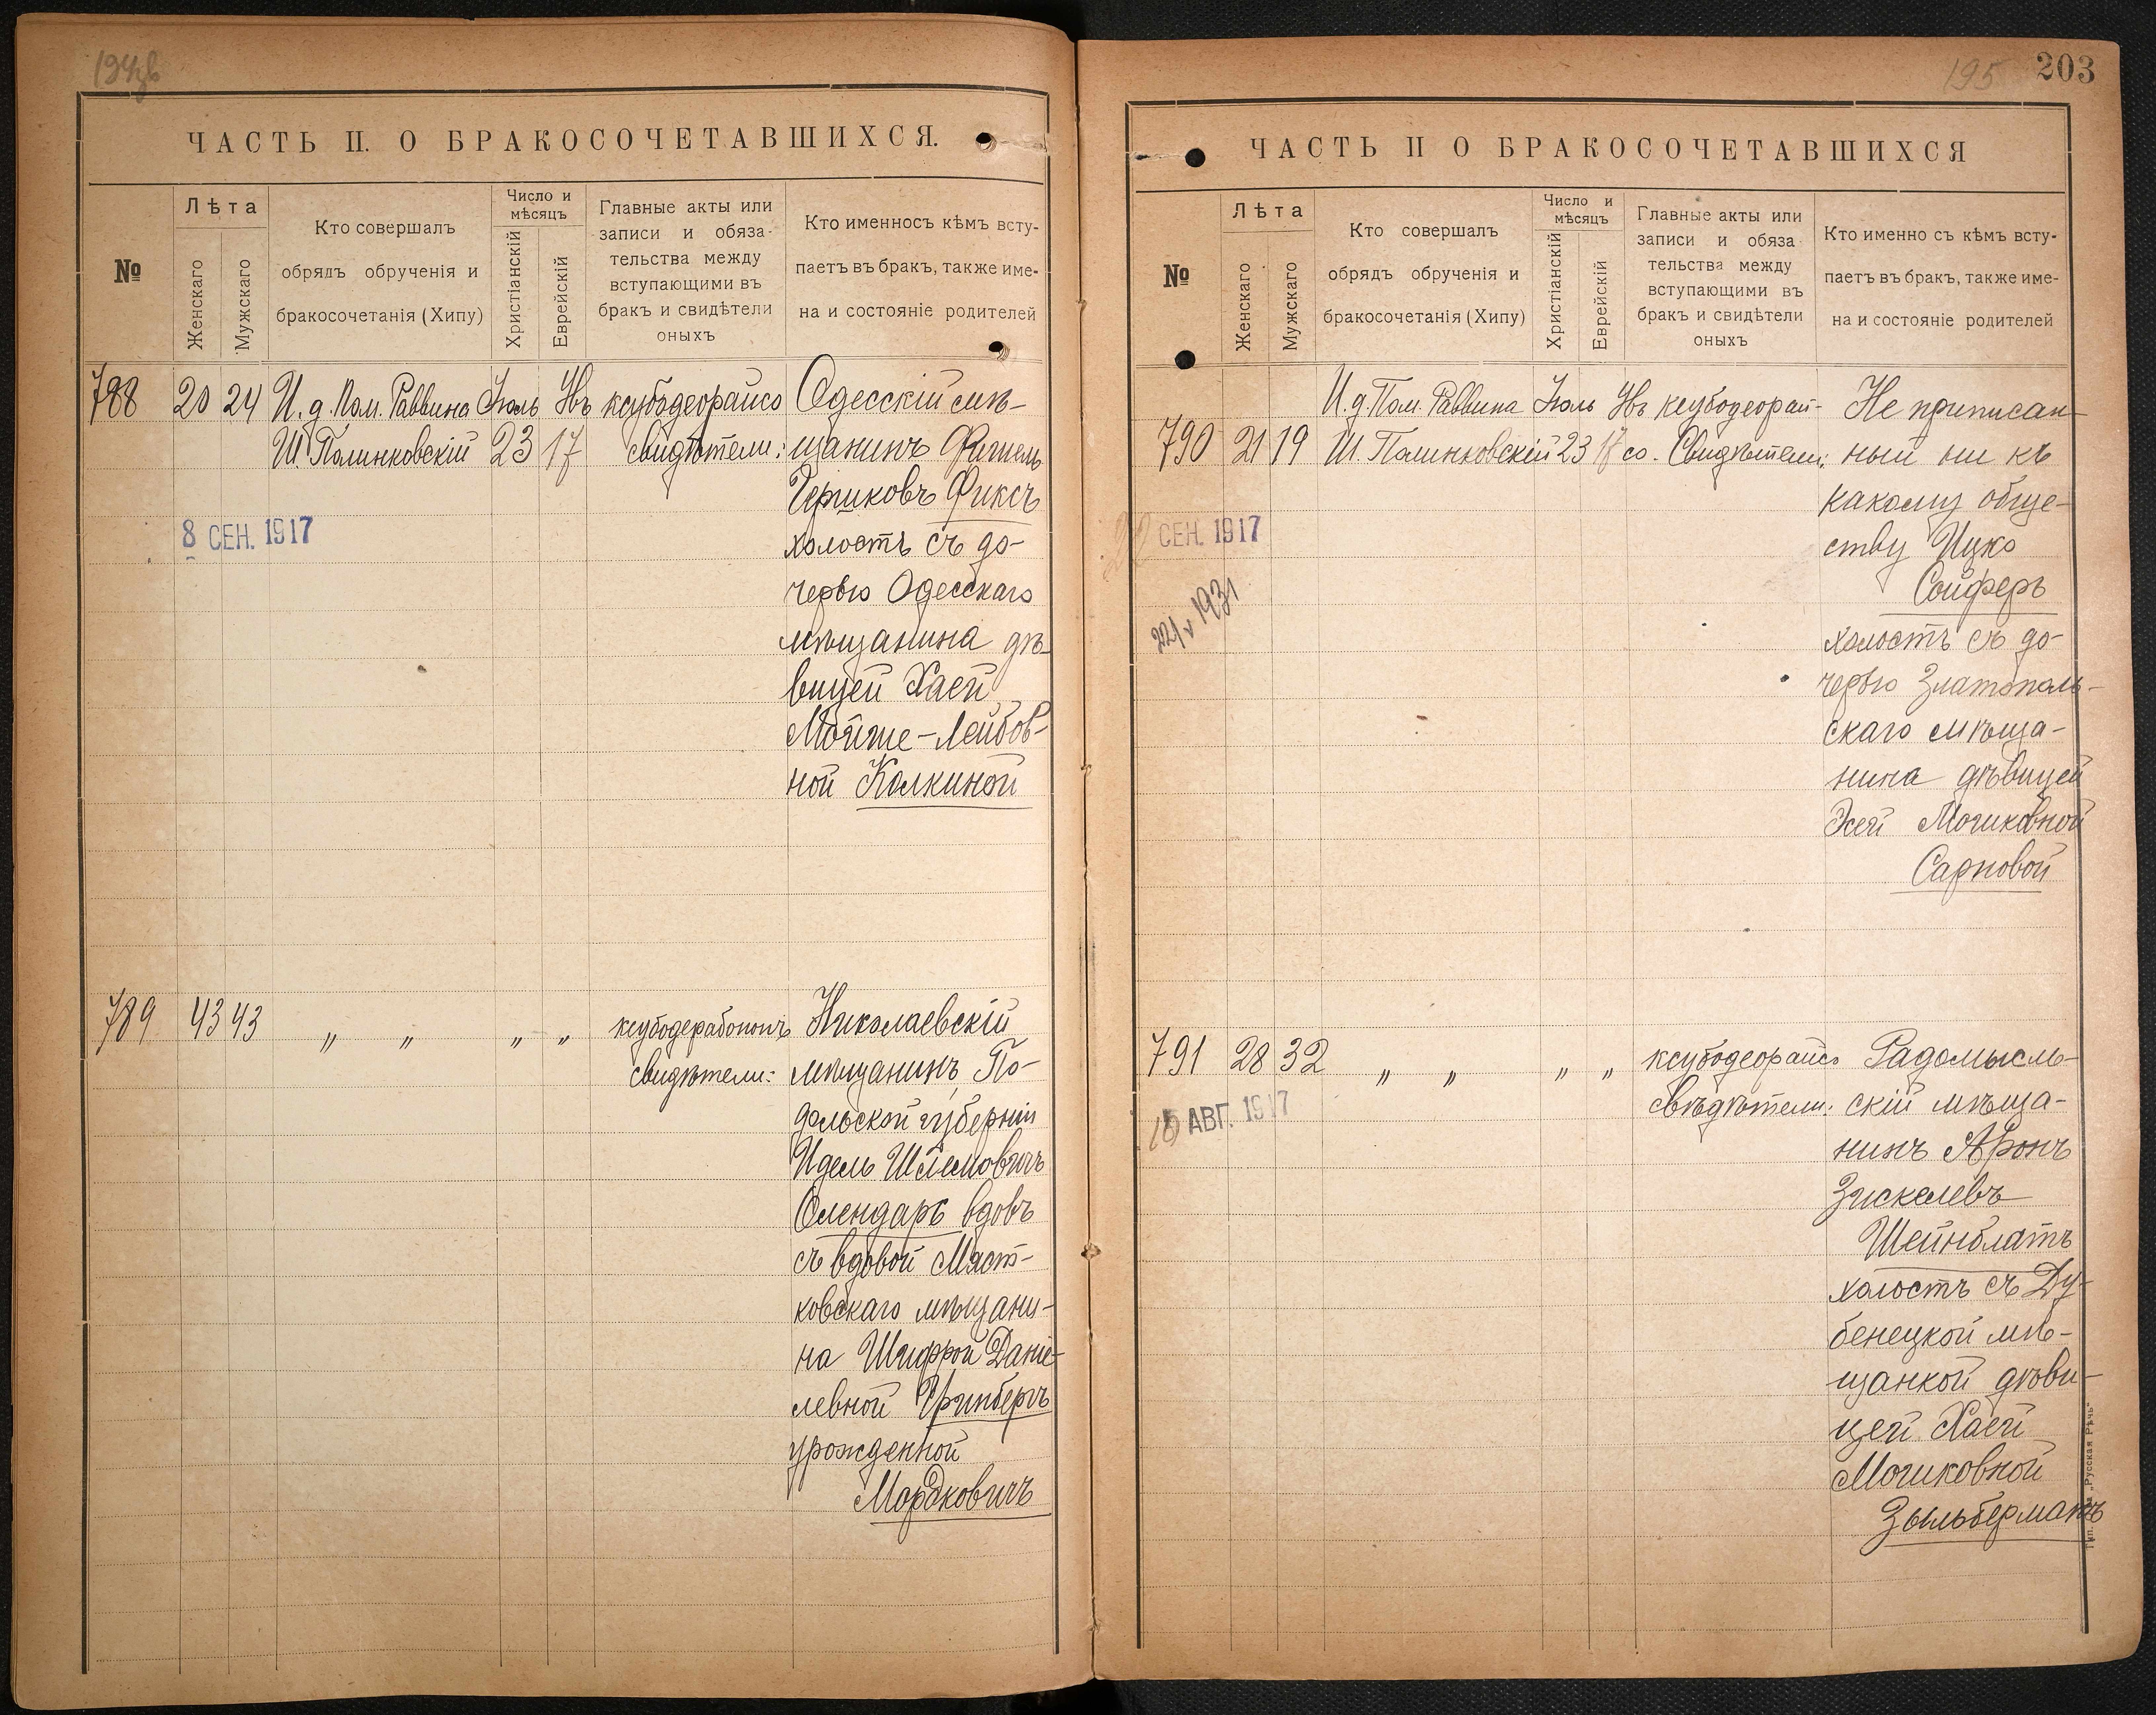 ЧАСТЬ II. О БРАКОСОЧЕТАВШИХСЯ.
№
Лѣта
Женскаго
Мужскаго
Кто совершалъ
обрядъ обрученія и
бракосочетанія (Хипу)
Число и
мѣсяцъ
Христіанскій
Еврейскій
Главные акты или
записи и обяза-
тельства между
вступающими въ
бракъ и свидѣтели
оныхъ
Кто именносъ кѣмъ всту-
паетъ въ бракъ, также име-
на и состояніе родителей
788 20 24 И. д. Пом. Раввина Іюль Явъ ксубодеорайсо Одесскій мѣ-
Ш. Полинковскій 23 17 свидѣтели: щанинъ Фишель
Гершковъ Фиксъ
8 СЕН. 1917
холостъ съ до-
черью Одесскаго
мѣщанина дѣ-
вицей Хаей
Мойше-Лейбов-
ной Колкиной
789 43 43 " " " " ксубодерабононъ Николаевскій
свидѣтели: мѣщанинъ, По-
дольской губерніи
Идель Шлемовичъ
Олендаръ вдовъ
съ вдовой Мяст-
ковскаго мѣщани-
на Шифрой Даніе-
левной Гринбергъ
урожденной
Мордковичъ
195 203
ЧАСТЬ II О БРАКОСОЧЕТАВШИХСЯ
№
Лѣта
Женскаго
Мужскаго
Кто совершалъ
обрядъ обрученія и
бракосочетанія (Хипу)
Число и
мѣсяцъ
Христіанскій
Еврейскій
Главные акты или
записи и обяза-
тельства между
вступающими въ
бракъ и свидѣтели
оныхъ
Кто именно съ кѣмъ всту-
паетъ въ бракъ, также име-
на и состояніе родителей
И. д. Пом. Раввина Іюль Явъ ксубодеорай- Не приписан-
790 21 19 Ш. Полинковскій 23 17 со. Свидѣтели: ный ни къ
какому обще-
22 СЕН. 1917
ству Ицко
Сойферъ
22/V 1931
холостъ съ до-
черью Златополь-
скаго мѣща-
нина дѣвицей
Эсей Мошковной
Сарновой
791 28 32 " " " " ксубодеорайсо Радомысль-
свѣдѣтели: скій мѣща-
АВГ. 1917
нинъ Аронъ
Зискелевъ
Шейнблатъ
холостъ съ Ду-
бенецкой мѣ-
щанкой дѣви-
цей Хаей
Мошковной
Зыльберманъ
Тип. "Русская Рѣчь"